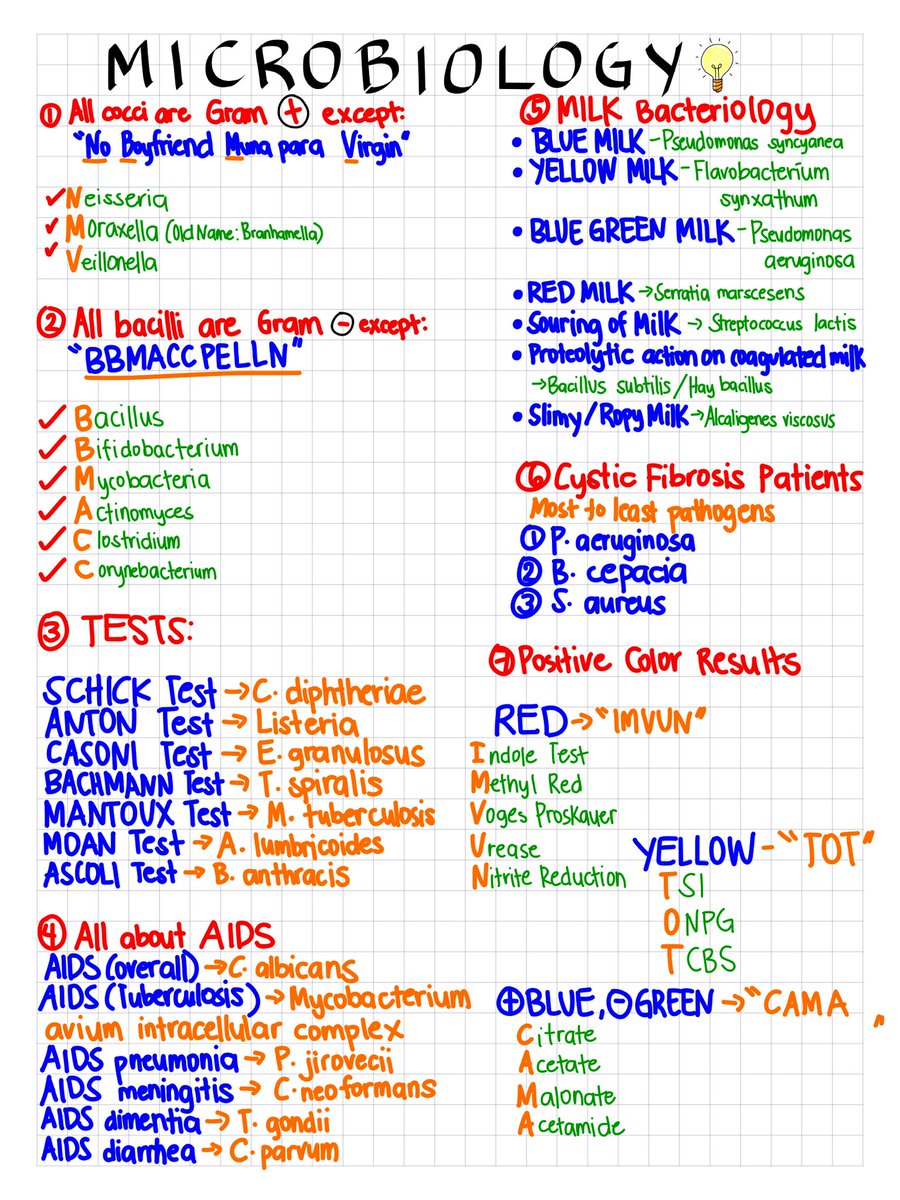 MICROBIOLOGY
① All cocci are Gram ⊕ except:
"No Boyfriend Muna para Virgin"
✓ Neisseria
✓ Moraxella (Old Name: Branhamella)
✓ Veillonella
② All bacilli are Gram ⊖ except:
"BBMACCPELLN"
✓ Bacillus
✓ Bifidobacterium
✓ Mycobacteria
✓ Actinomyces
✓ Clostridium
✓ Corynebacterium
③ TESTS:
SCHICK Test → C. diphtheriae
ANTON Test → Listeria
CASONI Test → E. granulosus
BACHMANN Test → T. spiralis
MANTOUX Test → M. tuberculosis
MOAN Test → A. lumbricoides
ASCOLI Test → B. anthracis
④ All about AIDS
AIDS (overall) → C. albicans
AIDS (Tuberculosis) → Mycobacterium
avium intracellular complex
AIDS pneumonia → P. jirovecii
AIDS meningitis → C. neoformans
AIDS dimentia → T. gondii
AIDS diarrhea → C. parvum
⑤ MILK Bacteriology
• BLUE MILK - Pseudomonas syncyanea
• YELLOW MILK - Flavobacterium
synxathum
• BLUE GREEN MILK - Pseudomonas
aeruginosa
• RED MILK → Serratia marscesens
• Souring of Milk → Streptococcus lactis
• Proteolytic action on coagulated milk
→ Bacillus subtilis / Hay bacillus
• Slimy / Ropy Milk → Alcaligenes viscosus
⑥ Cystic Fibrosis Patients
Most to least pathogens
① P. aeruginosa
② B. cepacia
③ S. aureus
⑦ Positive Color Results
RED → "IMVUN"
Indole Test
Methyl Red
Voges Proskauer
Urease
Nitrite Reduction
YELLOW - "TOT"
TSI
ONPG
TCBS
⊕ BLUE, ⊖ GREEN → "CAMA"
Citrate
Acetate
Malonate
Acetamide